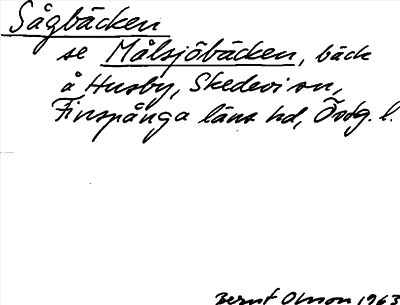 Sågbäcken
se Målsjöbäcken, bäck
å Husby, Skedevi sn,
Finspånga läns hd, Ög. l.
Bernt Olsson 1963